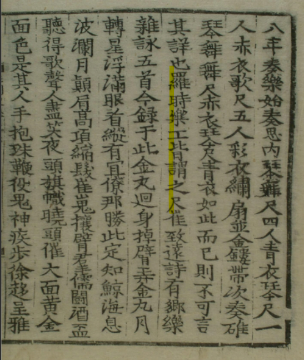 八年奏樂始奏思內琴舞尺四人青衣琴尺一
人赤衣歌尺五人彩衣繡扇並金鏤帶次奏碓
琴舞舞尺赤衣琴尺青衣如此而已則不可言
其詳也羅時樂工皆謂之尺崔致遠詩有鄉樂
雜詠五首今錄于此金丸廻身掉臂弄金丸月
轉星浮滿眼看縱有宜僚那勝此定知鯨海息
波瀾月顚肩高項縮髮崔嵬攘臂群儒鬪酒盃
聽得歌聲人盡笑夜頭旗幟曉頭催大面黃金
面色是其人手抱珠鞭役鬼神疾步徐趍呈雅